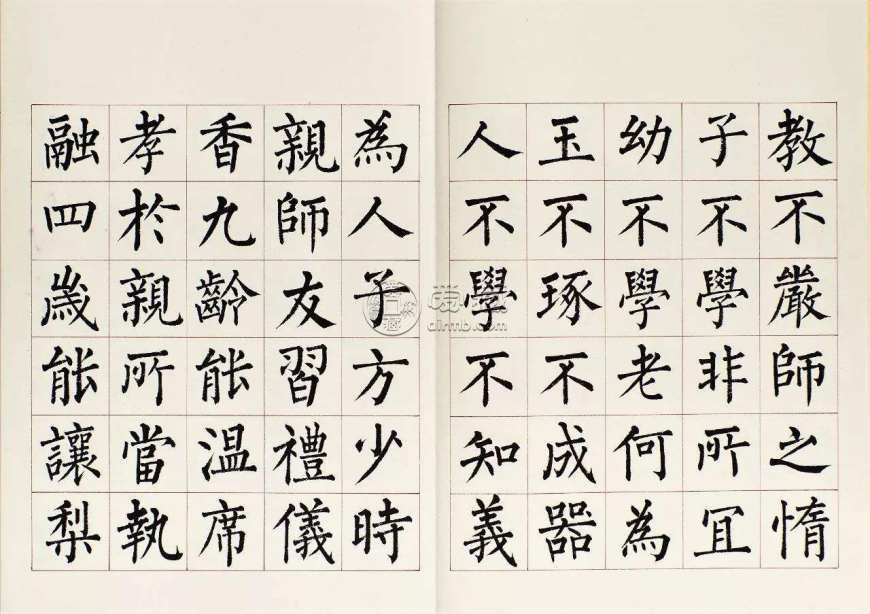 教不嚴師之惰
子不學非所宜
幼不學老何為
玉不琢不成器
人不學不知義
為人子方少時
親師友習禮儀
香九齡能溫席
孝於親所當執
融四歲能讓梨
dlrmb.com